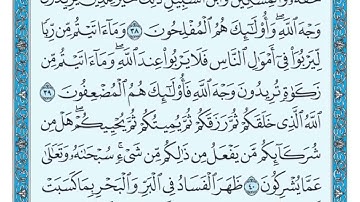 حَقَّهُۥ وَٱلْمِسْكِينَ وَٱبْنَ ٱلسَّبِيلِ ذَٰلِكَ خَيْرٌ لِّلَّذِينَ يُرِيدُونَ
وَجْهَ ٱللَّهِ وَأُو۟لَٰٓئِكَ هُمُ ٱلْمُفْلِحُونَ ٣٨ وَمَآ ءَاتَيْتُم مِّن رِّبًا
لِّيَرْبُوَا۟ فِىٓ أَمْوَٰلِ ٱلنَّاسِ فَلَا يَرْبُوا۟ عِندَ ٱللَّهِ وَمَآ ءَاتَيْتُم مِّن
زَكَوٰةٍ تُرِيدُونَ وَجْهَ ٱللَّهِ فَأُو۟لَٰٓئِكَ هُمُ ٱلْمُضْعِفُونَ ٣٩
ٱللَّهُ ٱلَّذِى خَلَقَكُمْ ثُمَّ رَزَقَكُمْ ثُمَّ يُمِيتُكُمْ ثُمَّ يُحْيِيكُمْ هَلْ مِن
شُرَكَآئِكُم مَّن يَفْعَلُ مِن ذَٰلِكُم مِّن شَىْءٍ سُبْحَٰنَهُۥ وَتَعَٰلَىٰ
عَمَّا يُشْرِكُونَ ٤٠ ظَهَرَ ٱلْفَسَادُ فِى ٱلْبَرِّ وَٱلْبَحْرِ بِمَا كَسَبَتْ